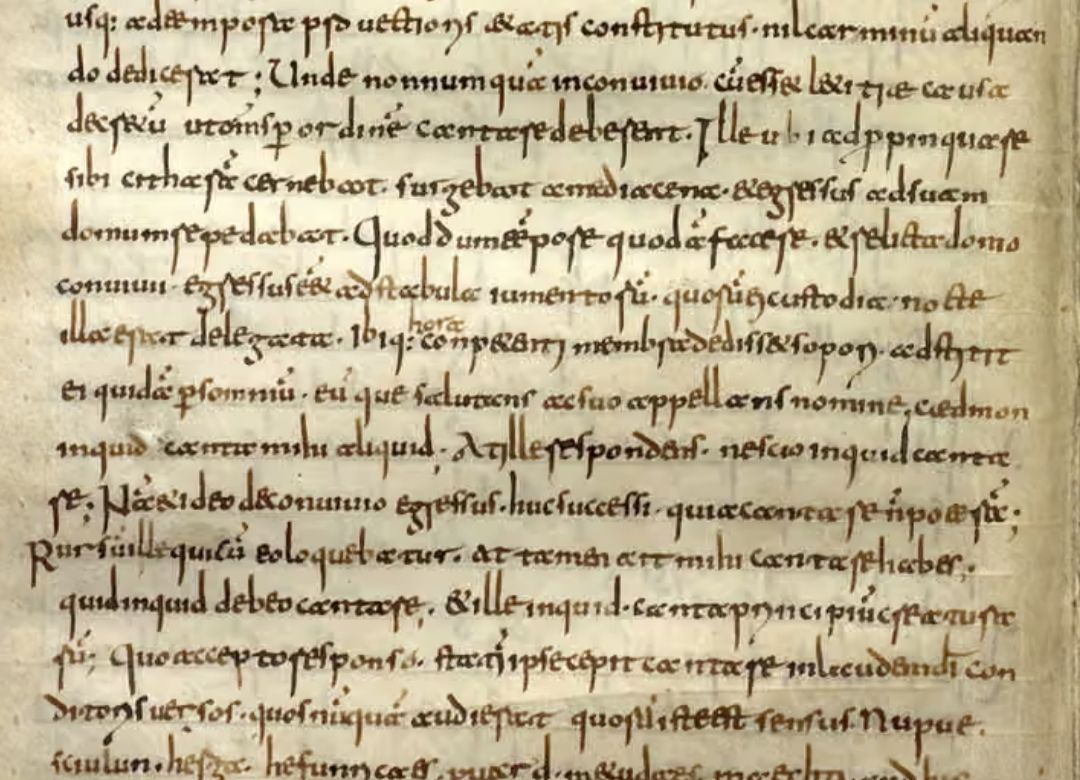 usq: ad tempora prouectioris &atis constitutus · nil carminū aliquan
do didicerat ; Unde nonnumquā inconuiuio · cū ess& l&itiæ causa
decr&ū ut om̄s ꝑ ordinē cantare deberent · Ille ubi adꝓpinquare
sibi citharā cernebat · surgebat amediacena · & egressus adsuam
domum repedabat · Quod dum tēpore quodā facer& · & relicta domo
conuiuii · egressus eē& ad stabula iumentorū · quorū ei custodia · nocte
illa erat delegata · Ibiq: hora conpetenti membra dediss& sopori · adstitit
ei quidā ꝑsomniū · eūque salutans acsuo appellans nomine · cædmon
inquid canta mihi aliquid ; At ille respondens · nescio inquid canta
re ; Nā & ideo deconuiuio egressus · huc successi · quia cantare n̄ poterā ;
Rursū ille qui cū eo loquebatur · At tamen ait mihi cantare habes ;
quid inquid debeo cantare ; & ille inquid · canta principiū creatura
rū ; Quo accepto responso · statī ipse cepit cantare inlaudem dī con
ditoris uersos · quos nūquā audierat quorū iste est sensus Nu pue ·
sciulun · herga · hefunricaes · puard · metudaes maechti · and his